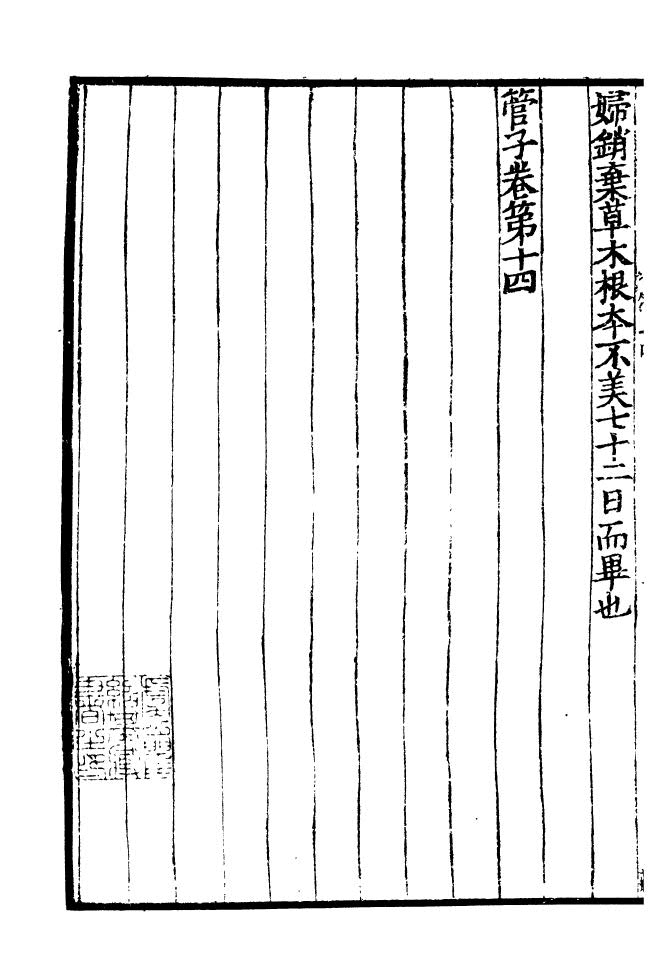 婦銷棄草木根本不美七十二日而畢也
管子卷第十四